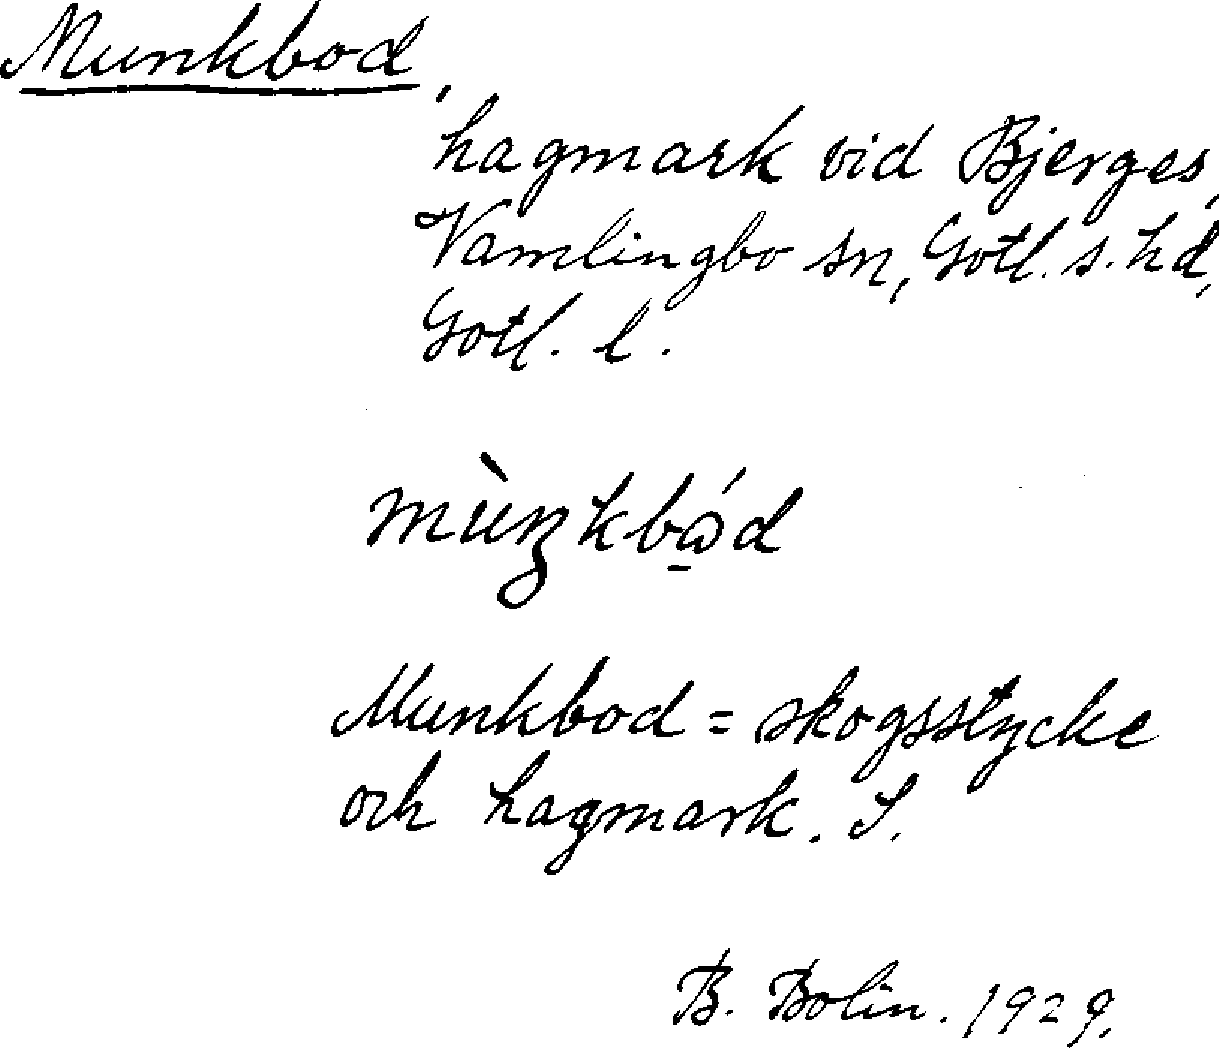 Munkbod,
hagmark vid Bjerges,
Vamlingbo sn, Gotl. s. hd,
Gotl. l.
Munkbod = skogsstycke
och hagmark. S.
B. Bolin. 1929.